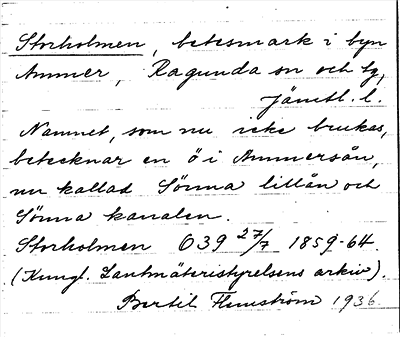 Storholmen, betesmark i byn
Ammer, Ragunda sn och tg,
Jämtl. l.
Namnet, som nu icke brukas,
betecknar en ö i Ammerån,
nu kallad Sönna lillån och
Sönna kanalen.
Storholmen O39 27/7 1859-64.
(Kungl. Lantmäteristyrelsens arkiv).
Bertil Flemström 1936